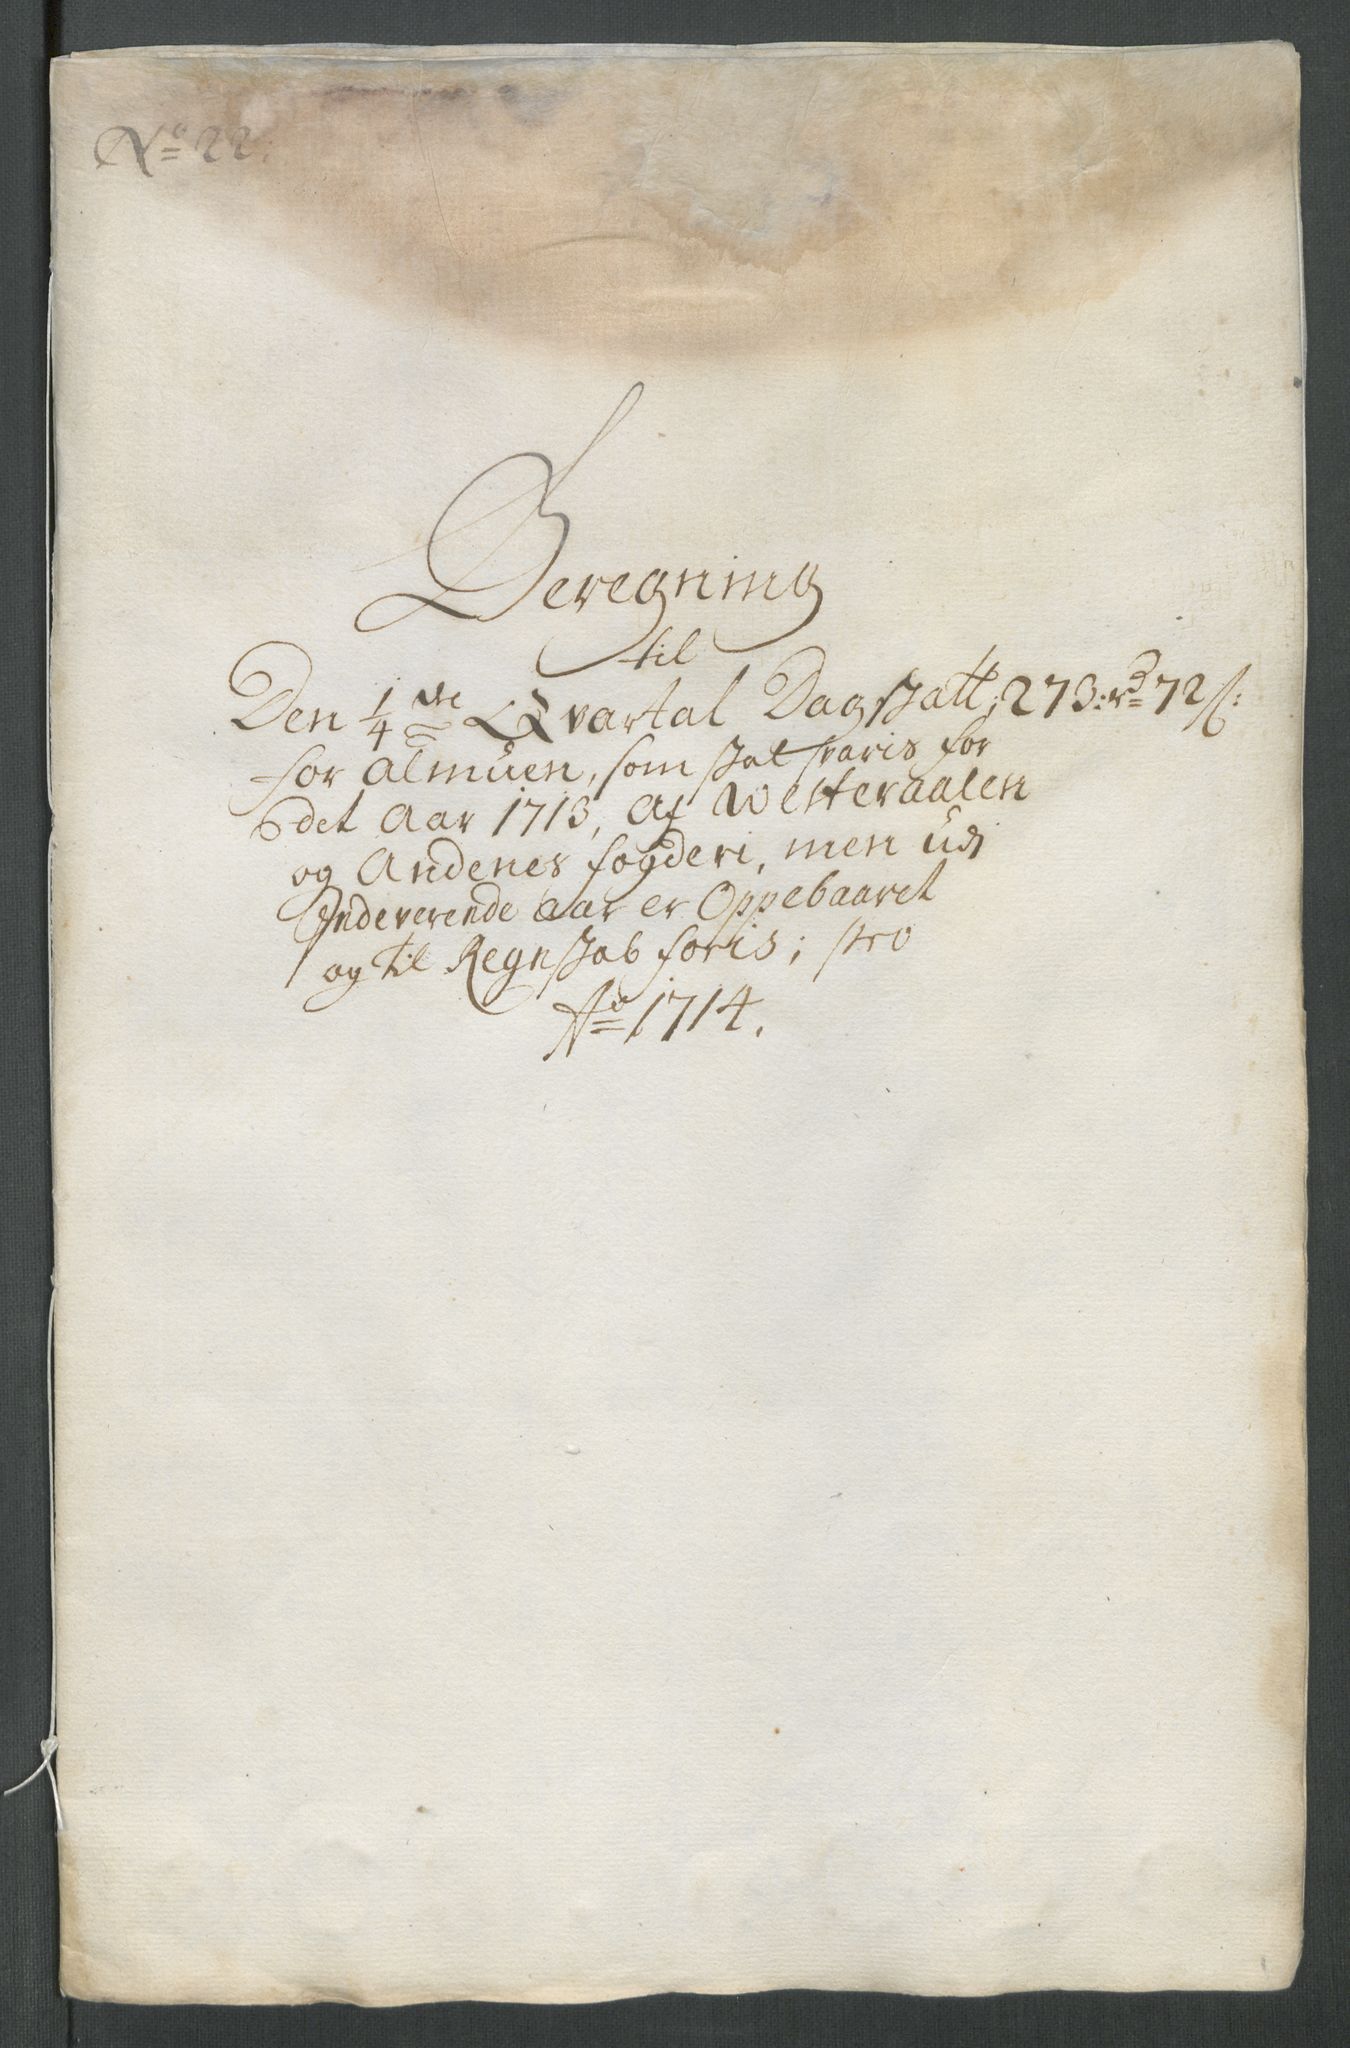 No 22:
Beregning
til
Den 1/4 de Qvartal Dagskatt; 273: rd 72 s:
for almuen, som skal svaris for
det Aar 1713, af Westeraalen
og Andenes fogderi, men udi
Indeverende Aar er Oppebaaret
og til Regnskab føris; pro
Ao 1714.